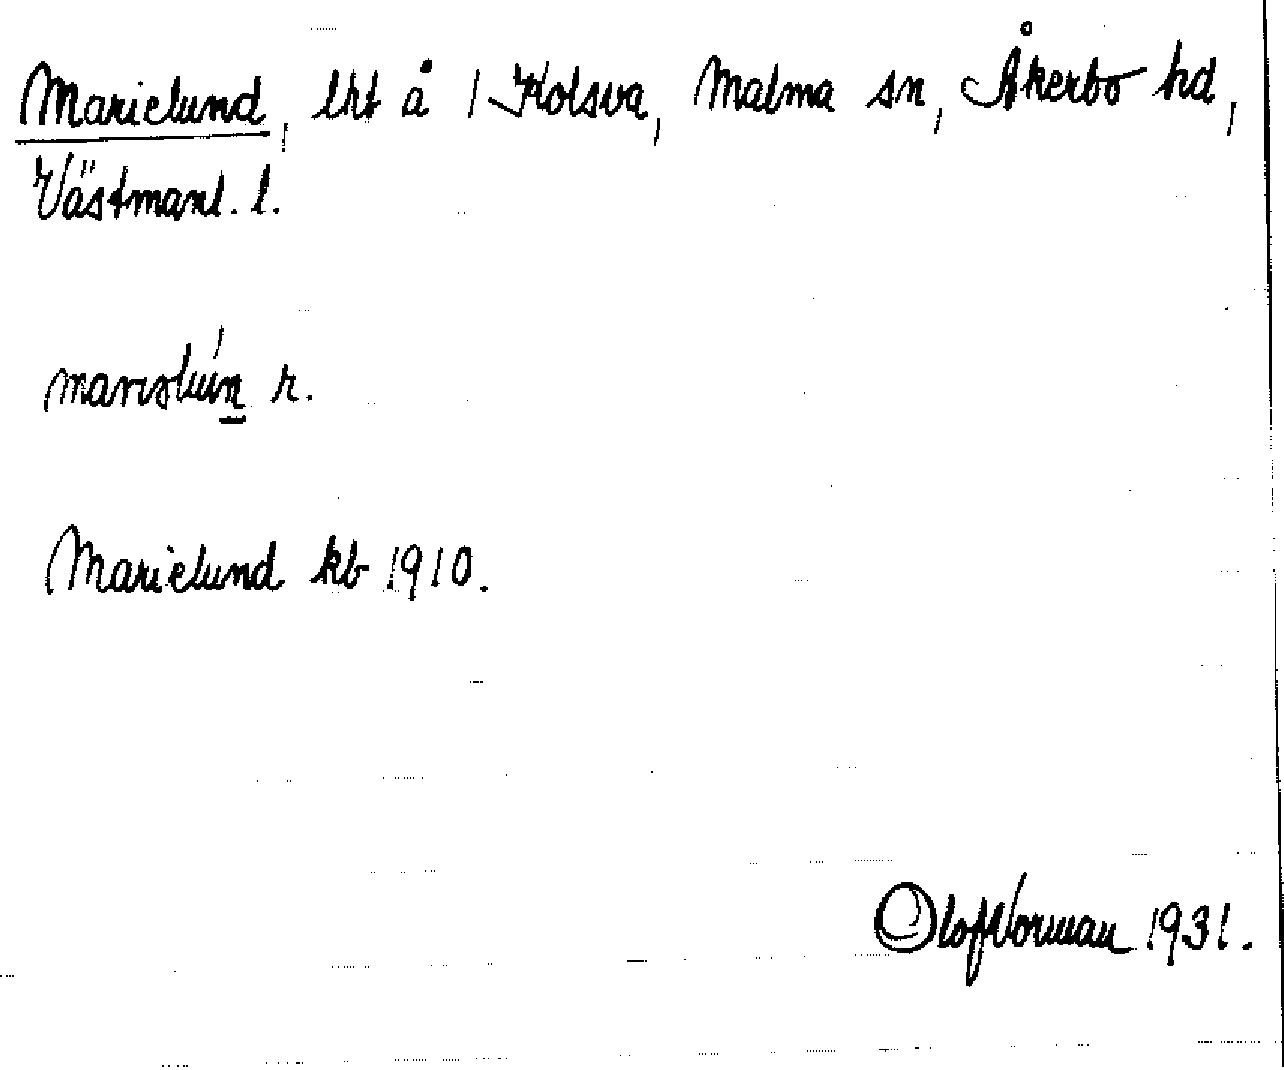 Marielund, lht å 1 Kolsva, Malma sn, Åkerbo hd,
Västmanl. l.
r.
Marielund kb 1910.
Olof Norman 1931.